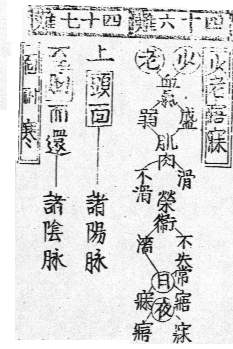 四十六難
少老寤寐
少
老
盛
弱
肌肉
滑
不滑
榮衛
不失常
濇
日夜
寤
寐
寐
寤
四十七難
上頭回
諸陽脉
而還
諸陰脉
耐寒